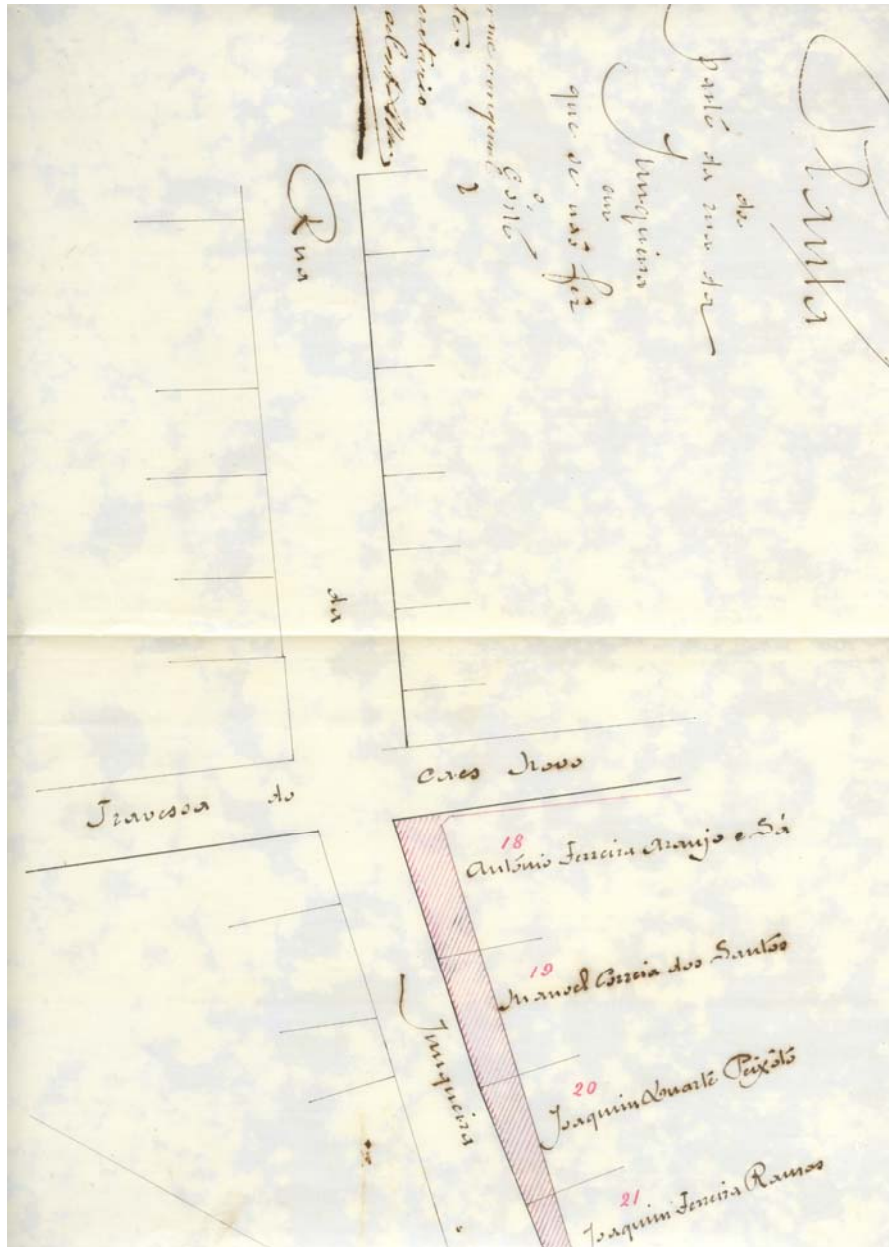 Planta
da
parte da rua da
Junqueira
em
que se não fêz
o
corte
Rua
da
Junqueira
Travessa do Caes Novo
18
António Ferreira Araujo e Sá
19
Manoel Correia dos Santos
20
Joaquim Duarte Peixôto
21
Joaquim Ferreira Ramos